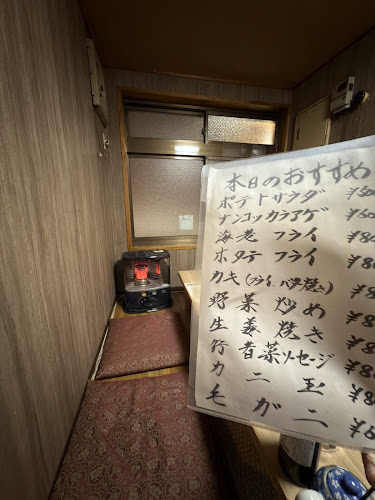 本日のおすすめ
ポテトサラダ
ナンコツカラアゲ ¥60
海老フライ ¥80
ホタテフライ ¥8
カキ(フライ、バター焼)
野菜炒め ¥8
生姜焼き ¥8
行者菜ソーセージ ¥8
カニ玉 ¥8
毛がニ